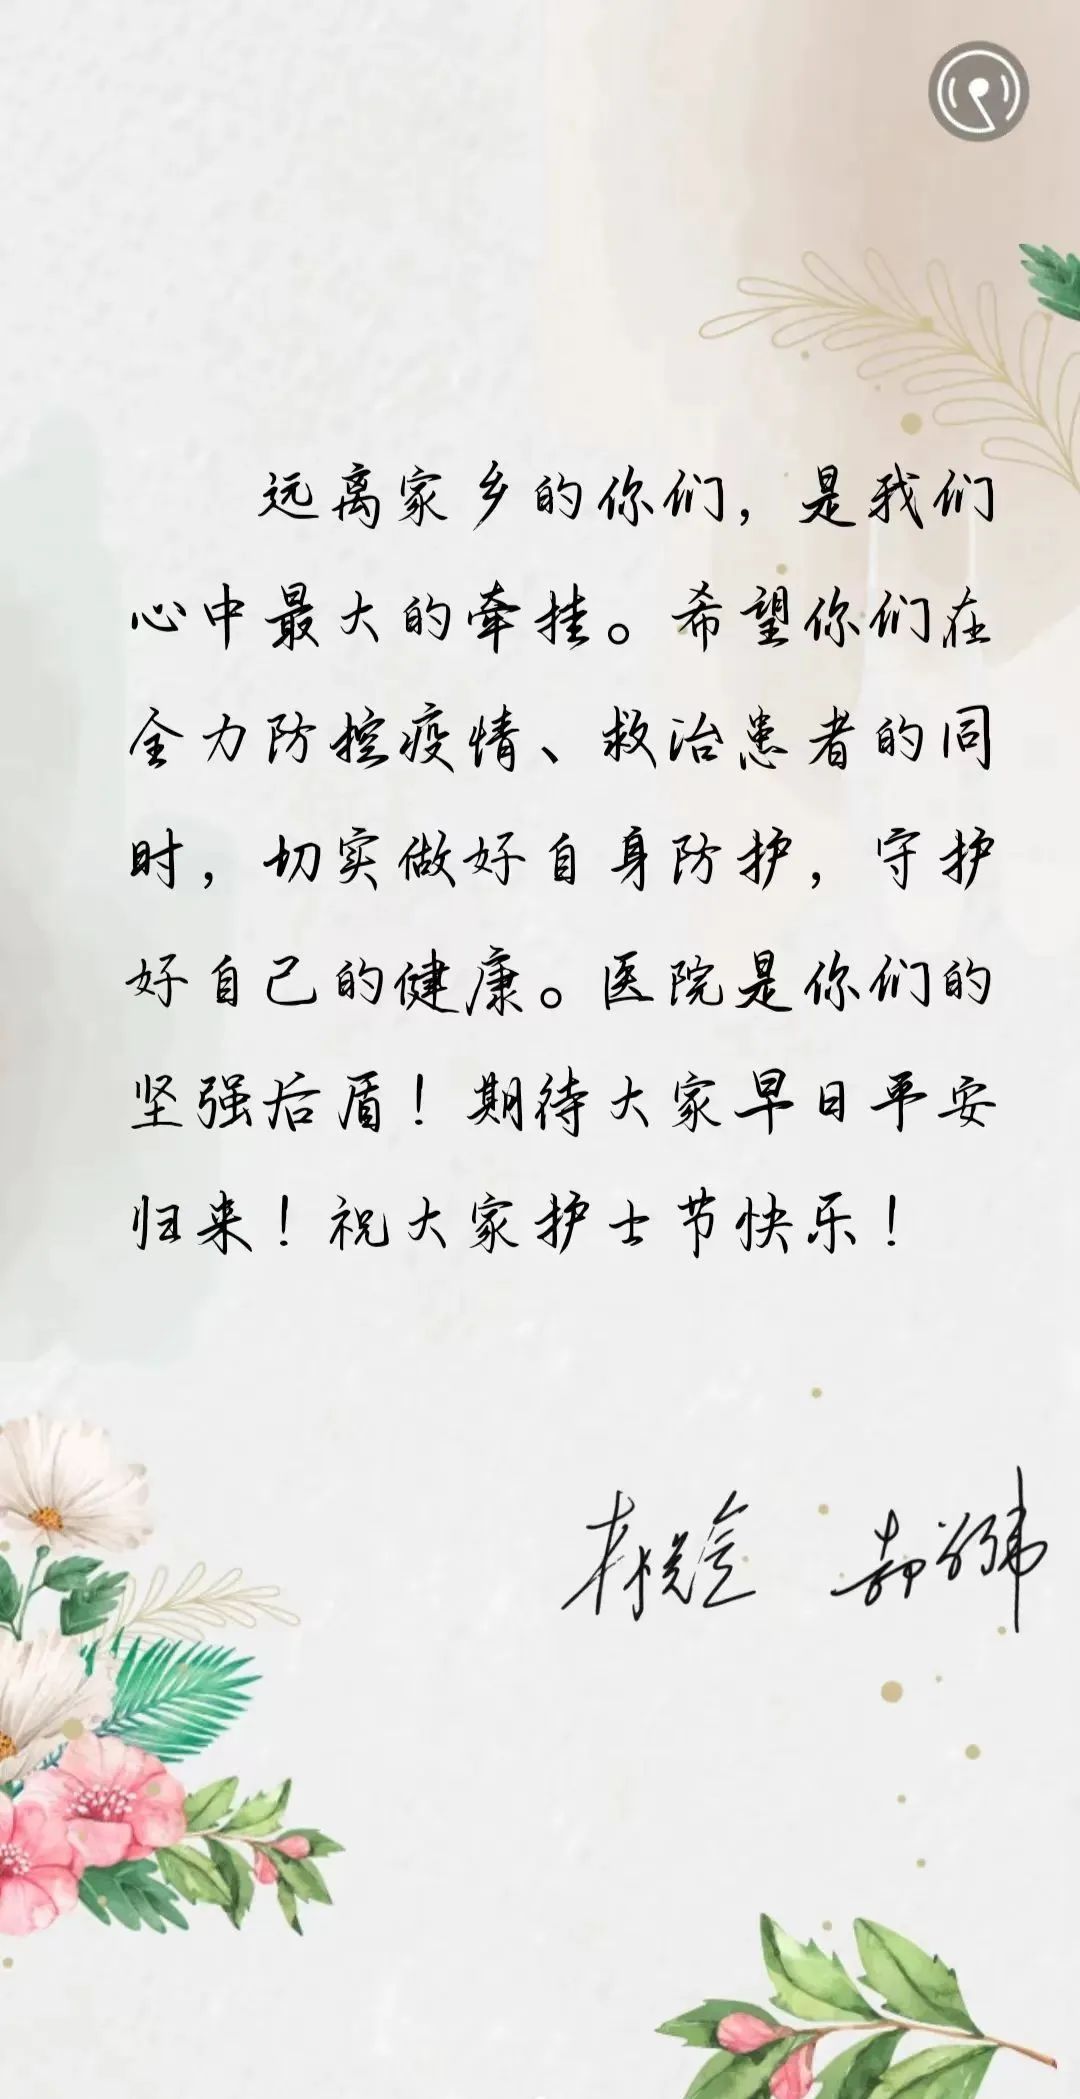 远离家乡的你们，是我们
心中最大的牵挂。希望你们在
全力防控疫情、救治患者的同
时，切实做好自身防护，守护
好自己的健康。医院是你们的
坚强后盾！期待大家早日平安
归来！祝大家护士节快乐！